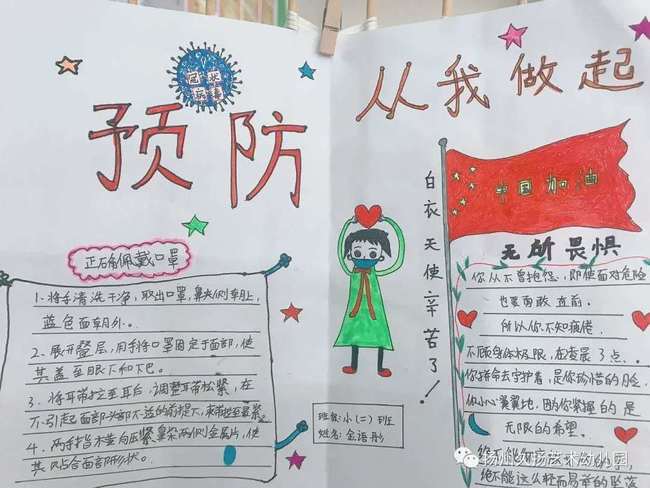 冠状病毒
预防
从我做起
中国加油
白衣天使辛苦了！
正确佩戴口罩
1、将手清洗干净，取出口罩，鼻夹侧朝上，
蓝色面朝外。
2、展开叠层，用手将口罩固定于面部，使
其盖至眼下和下巴。
3、将耳带拉至耳后，调整耳带松紧，在
不引起面部外部不适的前提下，
4、两手指木
向压紧鼻梁两侧金属片，使
其贴合面部形状。
班级：小（二）班
姓名：金语彤
无所畏惧
你从不曾抱怨，即使面对危险
也要勇敢直前。
所以你不知疲倦
不顾身体极限，在凌晨3点..
你拼命去守护着，是你珍惜的脸
你小心翼翼地，因为你紧握的是
无限的希望。
绝不能这么轻而易举的坠落
扬州文扬艺术幼儿园